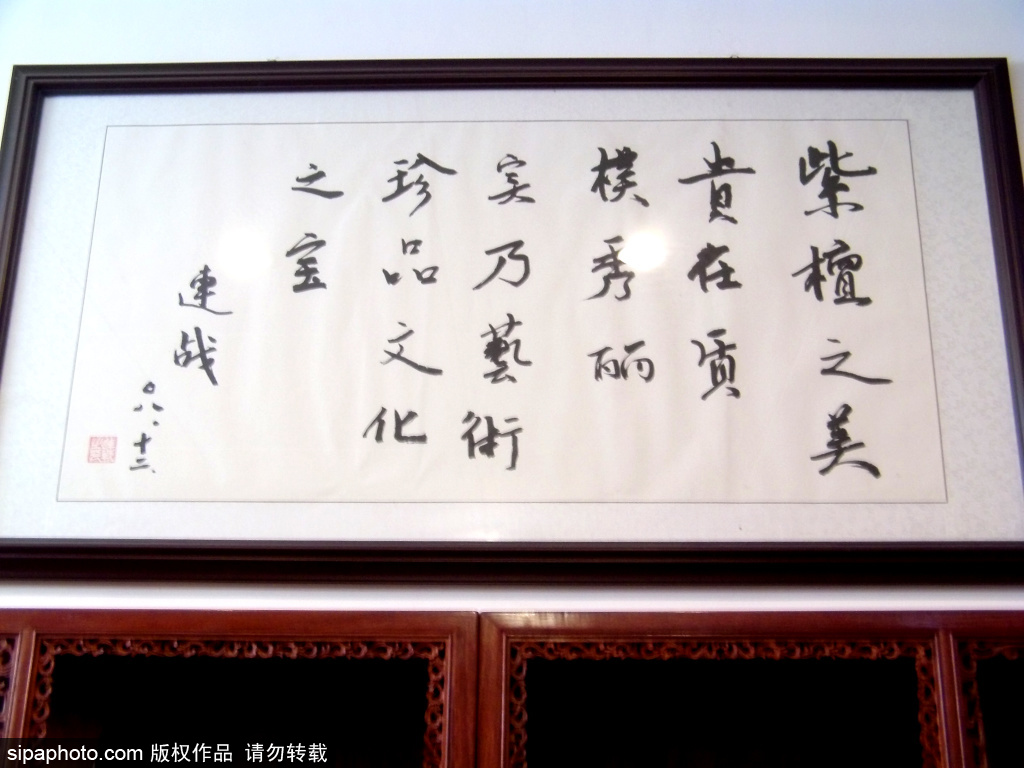 紫檀之美
貴在质
樸秀丽
实乃藝術
珍品文化
之宝
连战
〇八.十二.
sipaphoto.com 版权作品 请勿转载